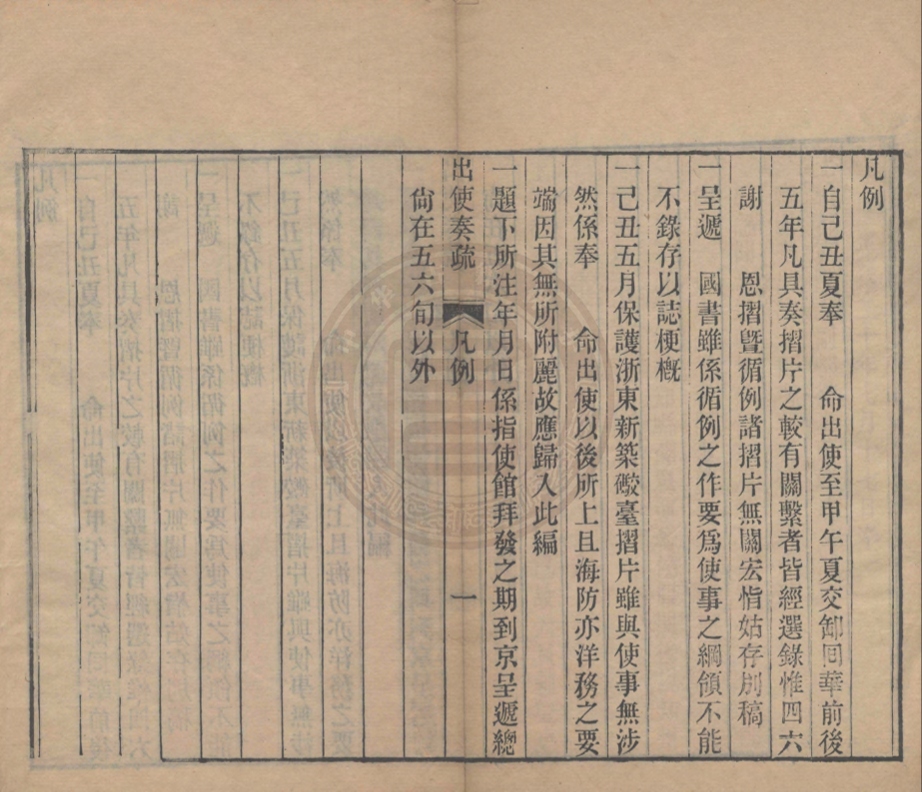 凡例
一自己丑夏奉　命出使至甲午夏交卸回華前後
五年凡具奏摺片之較有關繫者皆經選錄惟四六
謝　恩摺曁循例諸摺片無關宏恉姑存別稿
一呈遞　國書雖係循例之作要爲使事之綱領不能
不錄存以誌梗槪
一己丑五月保護浙東新築礮臺摺片雖與使事無涉
然係奉　命出使以後所上且海防亦洋務之要
端因其無所附麗故應歸入此編
一題下所注年月日係指使館拜發之期到京呈遞總
尙在五六旬以外
出使奏疏　凡例　一